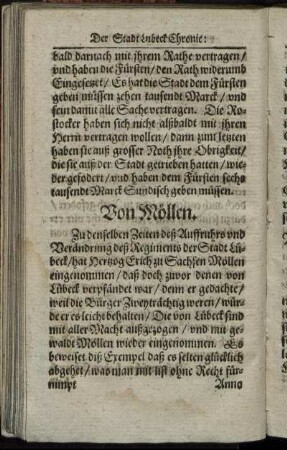 Der Stadt Lübeck Chronic:
bald darnach mit jhrem Rathe vertragen/
vnd haben die Fürsten/ den Rath widerumb
Eingesetzet/ Es hat die Stadt dem Fürsten
geben müssen zehen tausendt Marck/ vnd
sein damit alle Sache vertragen. Die Ro-
stocker haben sich nicht alßbaldt mit jhren
Herrn vertragen wollen/ dann zum letzten
haben sie auß grosser Noth jhre Obrigkeit/
die sie auß der Stadt getrieben hatten/ wie-
der gefodert/ vnd haben dem Fürsten sechs
tausendt Marck Sundisch geben müssen.
Von Möllen.
Zu denselben Zeiten deß Auffruhrs vnd
Verändrung deß Regiments der Stadt Lü-
beck/ hat Hertzog Erich zu Sachsen Möllen
eingenommen/ daß doch zuvor denen von
Lübeck verpfändet war/ denn er gedachte/
weil die Bürger Zweyträchtig weren/ wür-
de er es leicht behalten/ Die von Lübeck sind
mit aller Macht außgezogen/ vnd mit ge-
waldt Möllen wieder eingenommen. Es
beweiset diß Exempel daß es selten glücklich
abgehet/ was man mit list ohne Recht für-
nimpt Anno